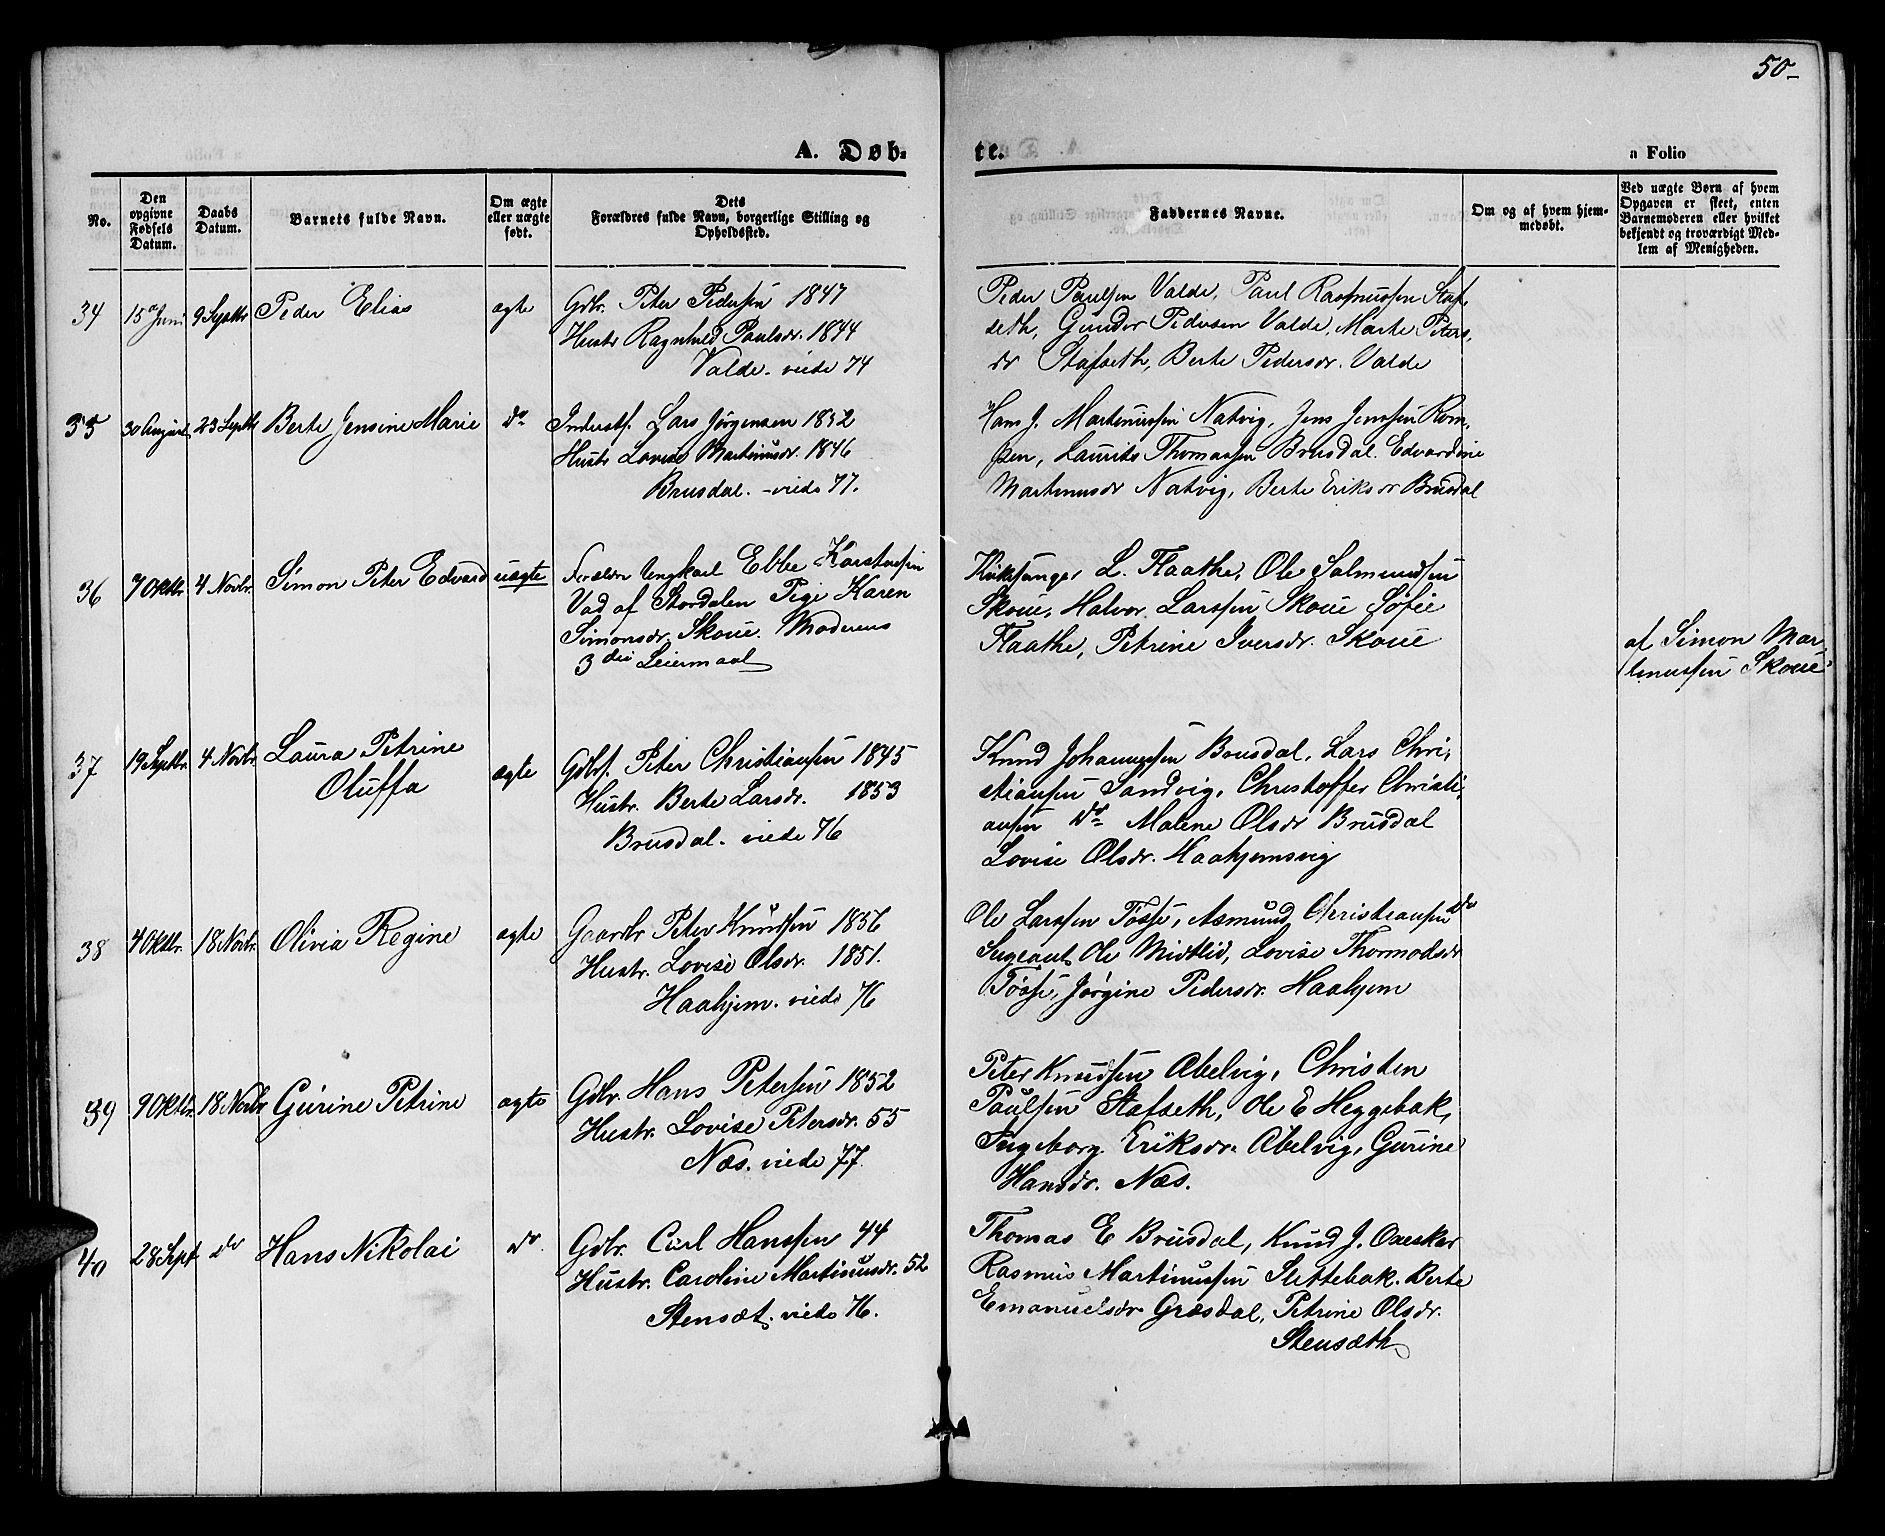 50-
A. Døb-
te.
a Folio
No.
Den opgivne Fødsels Datum.
Daabs Datum.
Barnets fulde Navn.
Om ægte eller uægte født.
Dets Forældres fulde Navn, borgerlige Stilling og Opholdssted.
Faddernes Navne.
Om og af hvem hjemmedøbt.
Ved uægte Børn af hvem Opgaven er skeet, enten Barnemoderen eller hvilket bekjendt og troværdigt Medlem af Menigheden.
34 15de Juni 9 Septbr Peder Elias ægte Gdbr. Peter Pedersen 1847
Hustr Ragnhild Paulsdr. 1844
Valde. viede 74
Peder Paulsen Valde, Paul Rasmussen Staf-
seth, Gunder Pedersen Valde, Marte Peters-
dr Stafseth, Berte Pedersdr. Valde
35 30 August 23 Septbr Berte Jensine Marie do Inderstf. Lars Jørgensen 1852
Hustr Lovise Martinusdr. 1846
Brusdal. - viede 77.
Hans J. Martinussen Natvig, Jens Jenssen Rom-
sen, Laurits Thomassen Brusdal. Edvardine
Martinusdr Natvig, Berte Eriksdr Brusdal
36 7 Oktbr. 4 Novbr. Simon Peter Edvard uægte Forældre Ungkarl Ebbe Karstensen
Vad af Stordalen Pige Karen
Simonsdr. Skoue. Moderens
3die Leiermaal
Kirkesanger L. Flaathe, Ole Salmundsen
Skoue, Halvor Larssen Skoue Sofie
Flaathe, Petrine Iversdr. Skoue
af Simon Mar-
tinussen Skoue
37 19 Septbr. 4 Novbr. Laura Petrine
Oluffa
ægte Gdbrf. Peter Christiansen 1845
Hustr. Berte Larsdr. 1853
Brusdal. viede 76
Knud Johannessen Brusdal, Lars Chri-
stiansen Sandvig, Christoffer Christi-
ansen do Malene Olsdr Brusdal
Lovise Olsdr. Haahjemsvig
38 4 Oktbr. 18 Novbr. Olivia Regine ægte Gaardbr Peter Knudsen 1856
Hustr. Lovise Olsdr. 1851.
Haahjem. viede 76
Ole Larssen Tøsse, Asmund Christiansen do
Sergeant Ole Midtlid, Lovise Thormodsdr
Tøsse, Jørgine Pedersdr. Haahjem
39 9 Oktbr. 18 Novbr Gurine Petrine ægte Gdbr. Hans Petersen 1852
Hustr. Lovise Petersdr. 55
Næs. viede 77.
Peter Knudsen Abelvig, Christen
Paulsen Stafseth, Ole E Heggebak,
Ingeborg Eriksdr. Abelvig, Gurine
Hansdr. Næs.
40 28 Sept do Hans Nikolai do. Gdbr. Carl Hanssen 44
Hustr. Caroline Martinusdr. 52
Stensæt. viede 76.
Thomas E Brusdal, Knud J. Oxeskar
Rasmus Martinussen Slettebak. Berte
Emanuelsdr Græsdal, Petrine Olsdr.
Stensæth